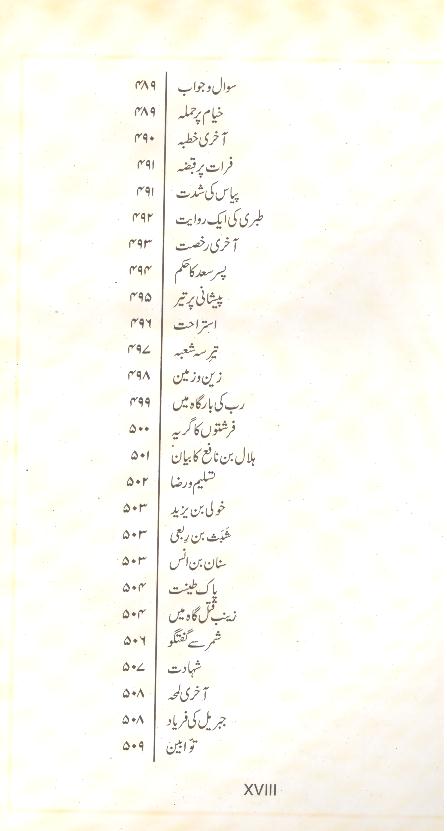 سوال و جواب ۴۸۹
خیام پر حملہ ۴۸۹
آخری خطبہ ۴۹۰
فرات پر قبضہ ۴۹۱
پیاس کی شدت ۴۹۱
طبری کی ایک روایت ۴۹۲
آخری رخصت ۴۹۳
پسر سعد کا حکم ۴۹۴
پیشانی پر تیر ۴۹۵
استراحت ۴۹۶
تیرِ سہ شعبہ ۴۹۷
زین و زمین ۴۹۸
رب کی بارگاہ میں ۴۹۹
فرشتوں کا گریہ ۵۰۰
ہلال بن نافع کا بیان ۵۰۱
تسلیم و رضا ۵۰۲
خولی بن یزید ۵۰۳
شَبَث بن رِبعی ۵۰۳
سنان بن انس ۵۰۳
پاک طینت ۵۰۴
زینب قتل گاہ میں ۵۰۴
شمر سے گفتگو ۵۰۶
شہادت ۵۰۷
آخری لمحہ ۵۰۸
جبریل کی فریاد ۵۰۸
توّابین ۵۰۹
XVIII